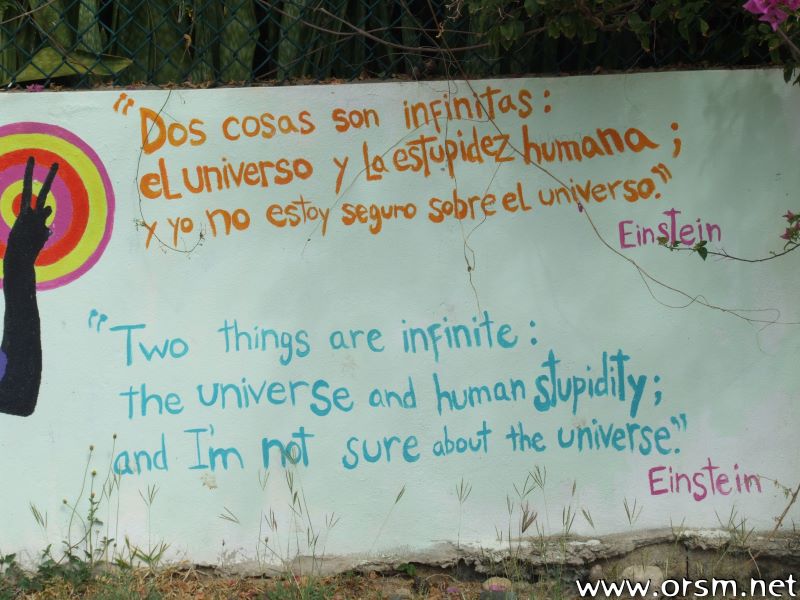 "Dos cosas son infinitas:
el universo y la estupidez humana;
y yo no estoy seguro sobre el universo."
Einstein
"Two things are infinite:
the universe and human stupidity;
and I'm not sure about the universe."
Einstein
www.orsm.net